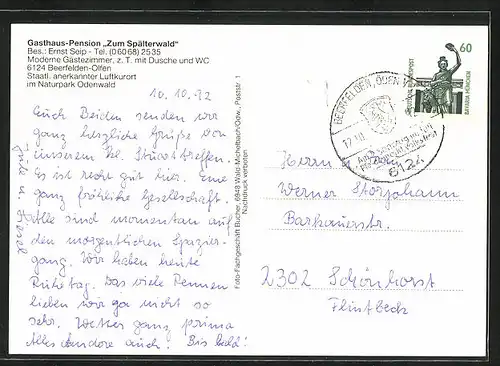 Gasthaus-Pension „Zum Spälterwald"
Bes.: Ernst Seip - Tel. (06068) 2535
Moderne Gästezimmer, z. T. mit Dusche und WC
6124 Beerfelden-Olfen
Staatl. anerkannter Luftkurort
im Naturpark Odenwald
10.10.92
Euch Beiden senden wir
ganz herzliche Grüße von
unserem Kl. Stadttreffen.
Es ist recht gut hier. Eine
ganz fröhliche Gesellschaft.
Alle sind momentan auf
den morgentlichen Spazier-
gang. Wir haben heute
Ruhetag. Das viele Rennen
lieben wir ja nicht so
sehr. Wetter ganz prima
Alles andere auch! Bis bald!
u.
Foto-Fachgeschäft Bucher, 6948 Wald-Michelbach/Odw., Poststr. 1
Nachdruck verboten
BEERFELDEN, ODENW
12.10.
6124
60
DEUTSCHE BUNDESPOST
BAVARIA MÜNCHEN
Herrn
Werner Storjohann
Barkauerstr.
2302 Schönhorst
Flintbeck